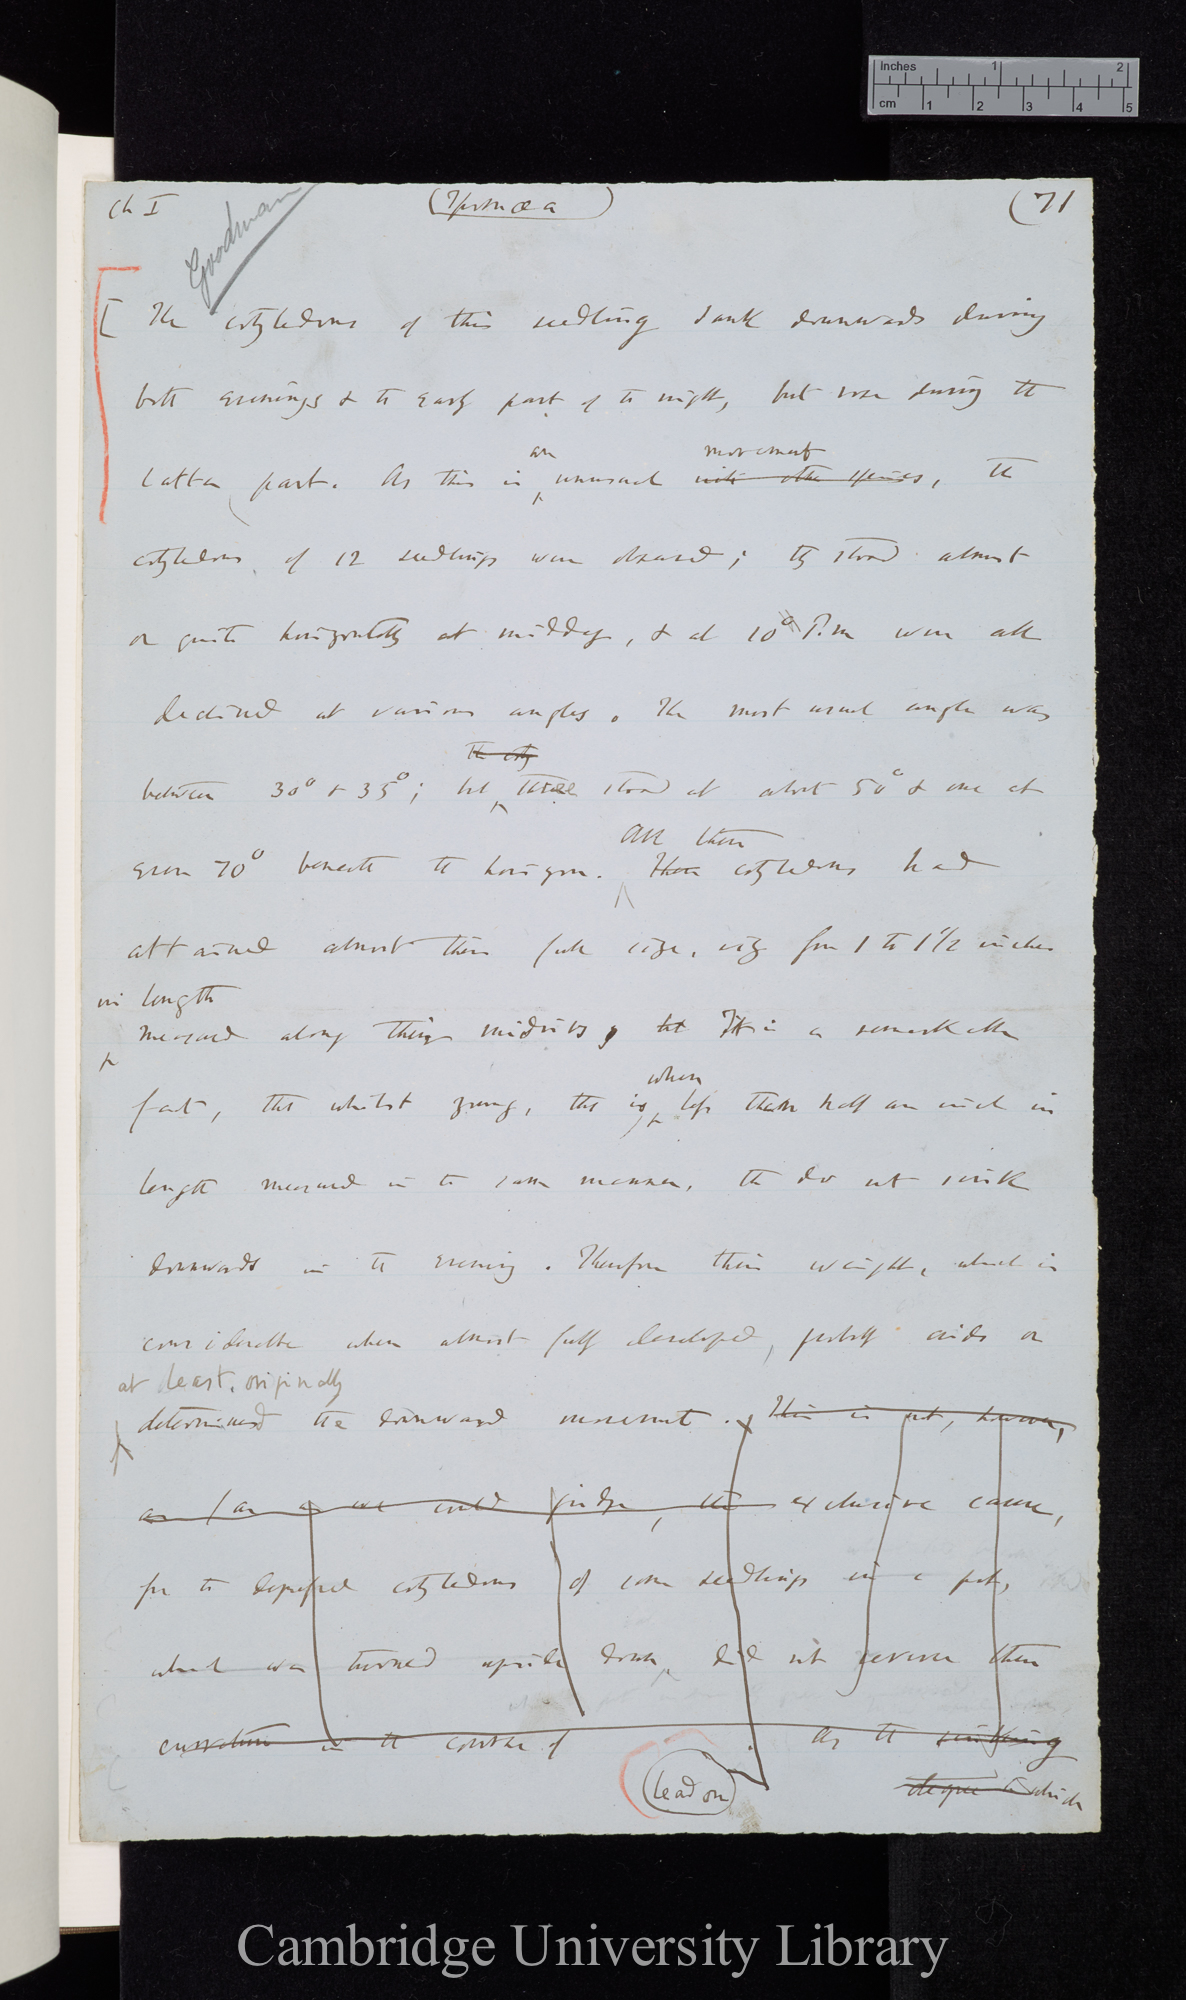 Inches 1 2
cm 1 2 3 4 5
Ch I (Ipomœa) (71
Goodman
[ The cotyledons of this seedling sank downwards during
both evenings & the early part of the night, but rose during the
an movement
latter part. As this is unusual with other species, the
cotyledons of 12 seedlings were observed; they stood almost
or quite horizontally at midday, & at 10° P.m were all
declined at various angles. The most usual angle was
The coty
between 30° & 35°; but three stood at about 50° & one at
All these
even 70° beneath the horizon. These cotyledons had
attained almost their full size, viz from 1 to 1 1/2 inches
in length
measured along their midribs, but It is a remarkable
when
fact, that whilst young, that is, less than half an inch in
length measured in the same manner, they do not sink
downwards in the evening. Therefore their weight, which is
considerable when almost fully developed, probably aids or
at least, originally
determined the downward movement. This is not, however,
as far as we could judge, the exclusive cause,
for the depressed cotyledons of some seedlings in a pot,
which was turned upside down, did not reverse their
curvature in the course of As the sinking
degree to which
(lead on)
Cambridge University Library